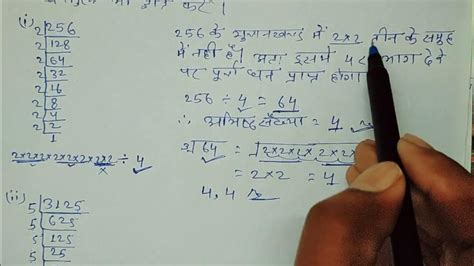 (i)
2 256
2 128
2 64
2 32
2 16
2 8
2 4
2 2
1
2×2×2×2×2×2×2×2 ÷ 4
256 के गुणनखण्ड में 2×2 तीन के समूह
में नहीं है। अतः इसमें 4 से भाग देने
पर पूर्ण घन प्राप्त होगा
256 ÷ 4 = 64
∴ अभीष्ट संख्या = 4
64 = 2×2×2×2×2×2
= 2×2 = 4
4, 4
(ii)
5 3125
5 625
5 125
5 25